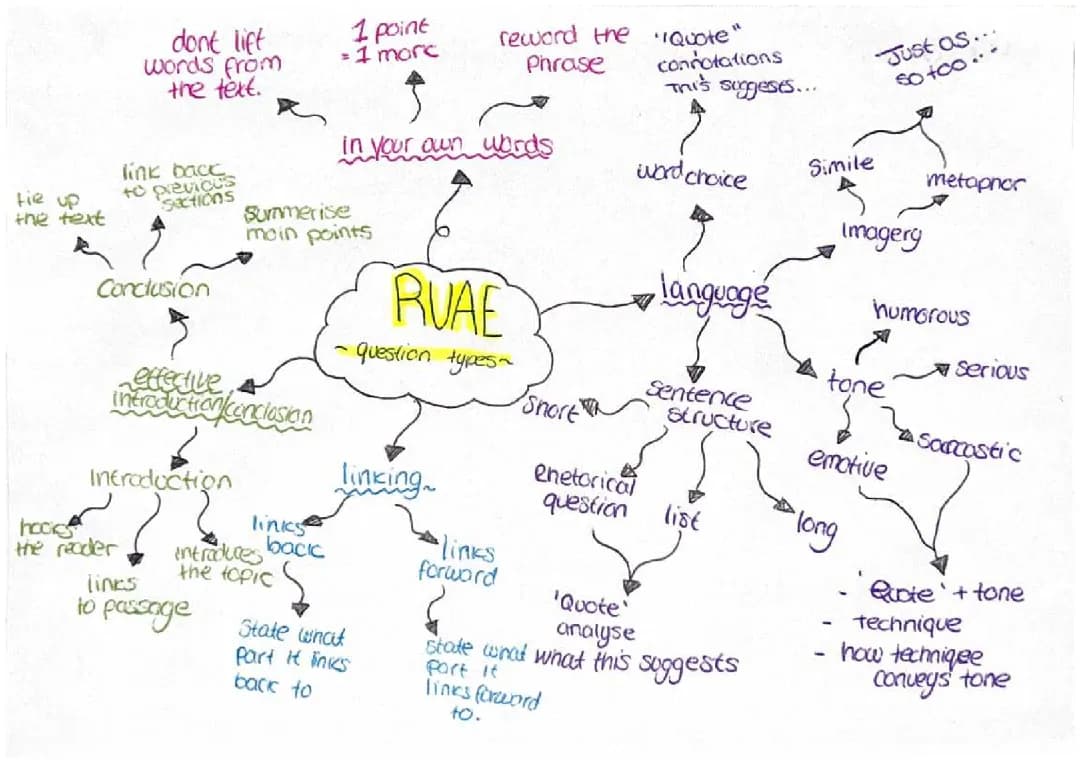 RUAE
~ question types ~
in your own words
dont lift
words from
the text.
1 point
= 1 mark
reword the
phrase
language
word choice
"Quote"
connotations
This suggests...
Imagery
Simile
metaphor
Just as...
so too...
tone
humorous
serious
sarcastic
emotive
- 'Quote' + tone
- technique
- how technique
conveys tone
sentence
structure
short
rhetorical
question
list
long
'Quote'
analyse
what this suggests
linking
links
back
State what
part it links
back to
links
forward
state what
part it
links forward
to.
effective
introduction/conclusion
Conclusion
tie up
the text
link back
to previous
sections
Summerise
main points
Introduction
hooks
the reader
links
to passage
introduces
the topic